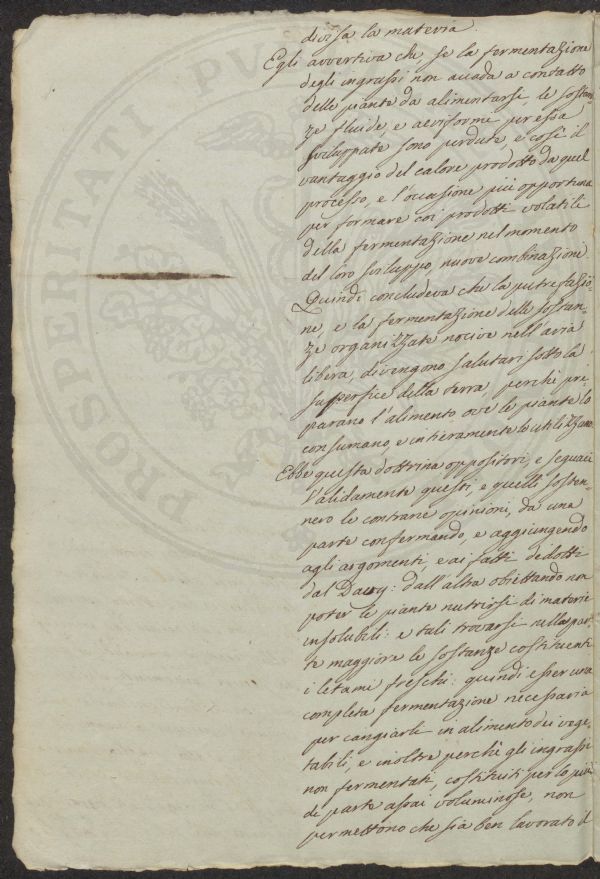 divisa la materia.
Egli avvertiva che se la fermentazione
degli ingrassi non accada a contatto
delle piante da alimentarsi, le sostan-
ze fluide, e aeriformi per essa
sviluppate sono perdute, e così il
vantaggio del calore prodotto da quel
processo, e l'occasione più opportuna
per formare coi prodotti volatili
della fermentazione nel momento
del loro sviluppo, nuove combinazione.
Quindi concludeva che la putrefazio-
ne, e la fermentazione delle sostan-
ze organizzate nocive nell'aria
libera, divengono salutari sotto la
superfice della terra, perchè pre-
parano l'alimento ove le piante lo
consumano, e intieramente lo utilizzano.
Ebbe questa dottrina oppositori, e seguaci
validamente questi, e quelli sosten-
nero le contrarie opinioni, da una
parte confermando, e aggiungendo
agli argomenti, e ai fatti dedotti
dal Davy: dall'altra obiettando non
poter le piante nutrirsi di materie
insolubili: e tali trovarsi nella par-
te maggiore le sostanze costituenti
i letami freschi: quindi esser una
completa fermentazione necessaria
per cangiarli in alimento dei vege-
tabili, e inoltre perchè gli ingrassi
non fermentati, costituiti per lo più
di parte assai voluminose, non
permettono che sia ben lavorato il
PROSPERITATI PU